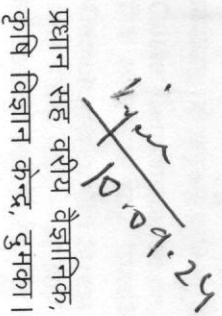 10.09.24
प्रधान सह वरीय वैज्ञानिक,
कृषि विज्ञान केन्द्र, दुमका।